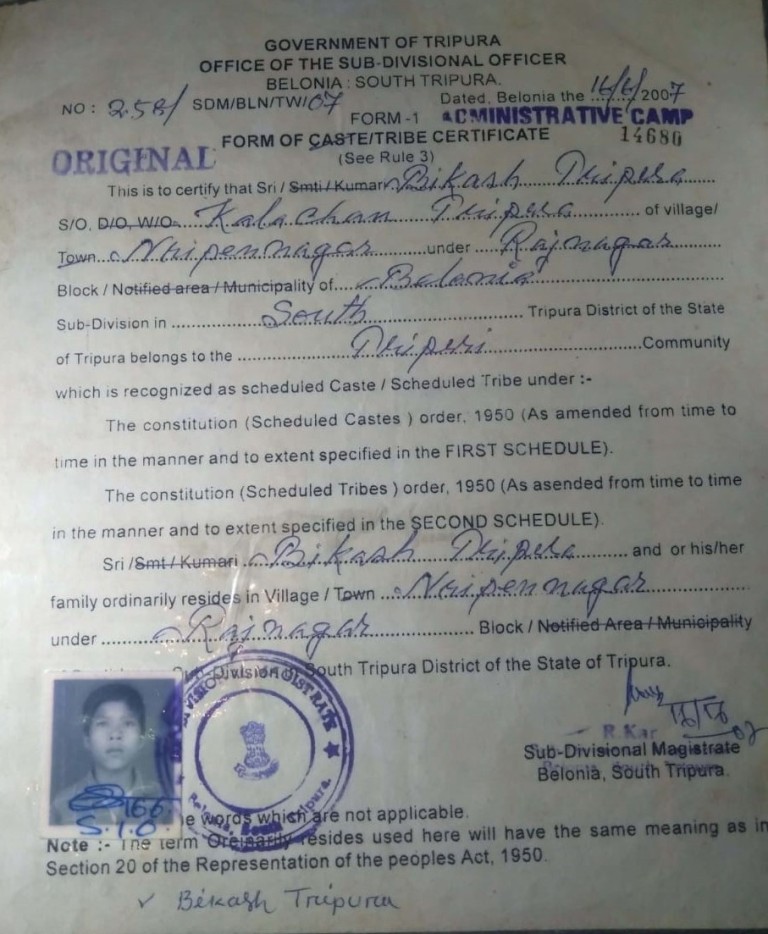 GOVERNMENT OF TRIPURA
OFFICE OF THE SUB-DIVISIONAL OFFICER
BELONIA : SOUTH TRIPURA.
NO : SDM/BLN/TW/07 Dated, Belonia the 16/6/2007
FORM -1 ADMINISTRATIVE CAMP
FORM OF CASTE/TRIBE CERTIFICATE 14680
ORIGINAL (See Rule 3)
This is to certify that Sri / Smti / Kumari Bikash Tripura
S/O, D/O, W/O Kalachan Tripura of village/
Town Nripennagar under Rajnagar
Block / Notified area / Municipality of Belonia
Sub-Division in South Tripura District of the State
of Tripura belongs to the Tripuri Community
which is recognized as scheduled Caste / Scheduled Tribe under :-
The constitution (Scheduled Castes ) order, 1950 (As amended from time to
time in the manner and to extent specified in the FIRST SCHEDULE).
The constitution (Scheduled Tribes ) order, 1950 (As asended from time to time
in the manner and to extent specified in the SECOND SCHEDULE).
Sri /Smt / Kumari Bikash Tripura and or his/her
family ordinarily resides in Village / Town Nripennagar
under Rajnagar Block / Notified Area / Municipality
Division in South Tripura District of the State of Tripura.
R. Kar
Sub-Divisional Magistrate
Belonia, South Tripura.
words which are not applicable.
Note :- The term Ordinarily resides used here will have the same meaning as in
Section 20 of the Representation of the peoples Act, 1950.
Bikash Tripura